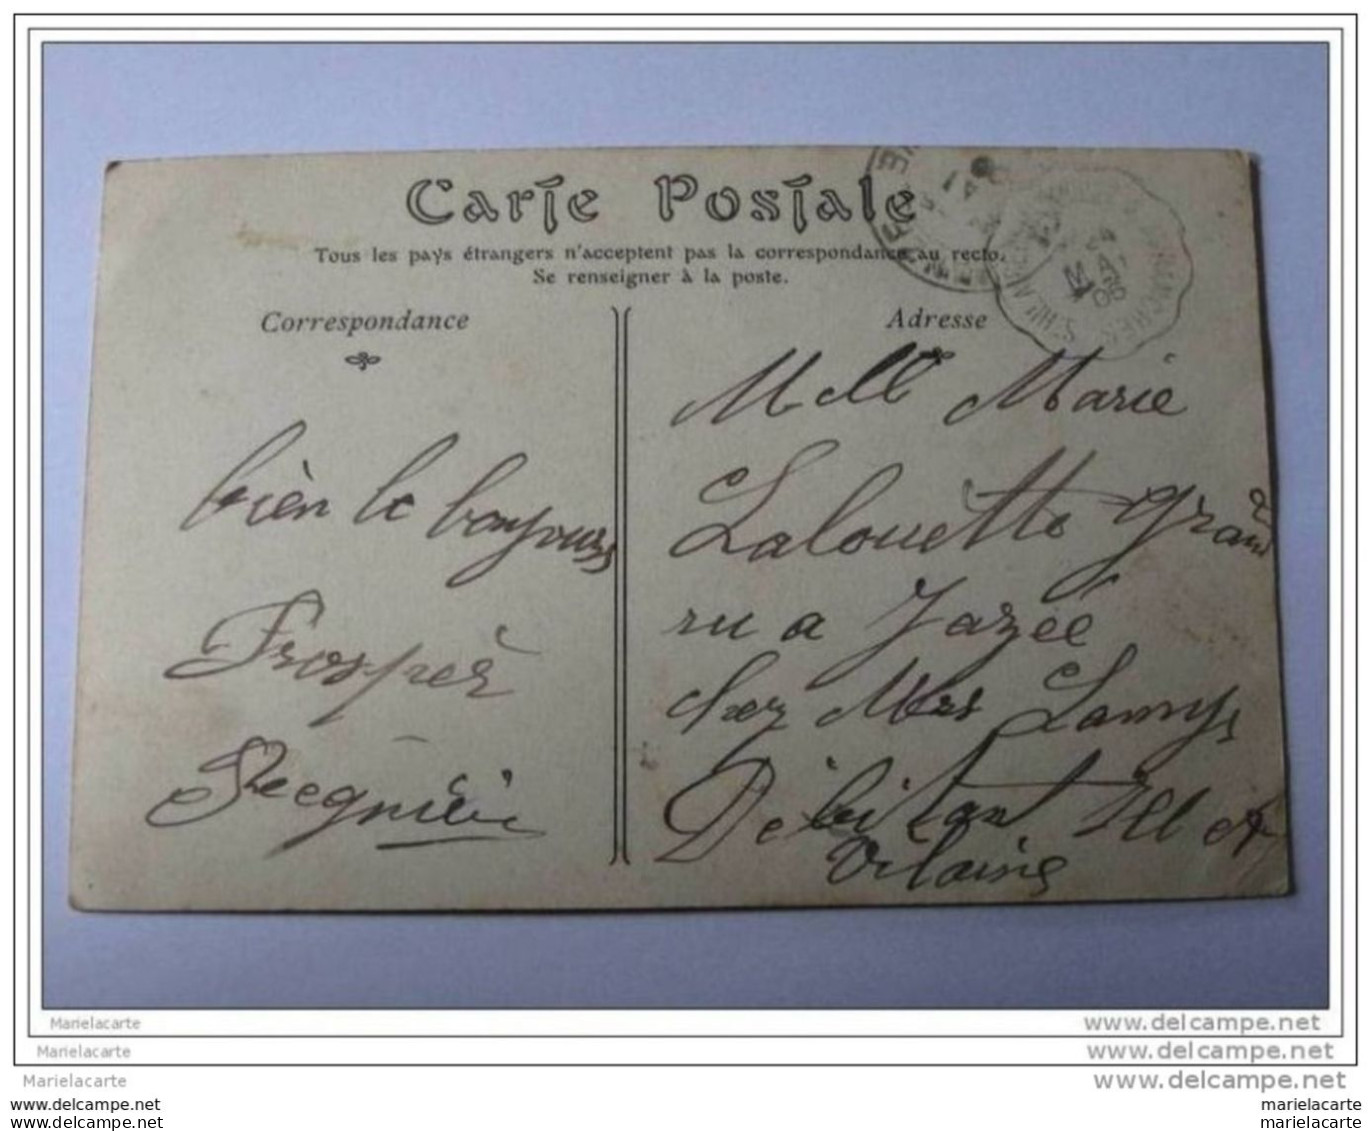 Carte Postale
Tous les pays étrangers n'acceptent pas la correspondance au recto.
Se renseigner à la poste.
Correspondance
bien le bonjours
Prosper
Adresse
Mlle Marie
Lalouette grand
ru a Janzée
chez Mrs Lamy
Débitant Ill et
Vilaine
MAI
Marielacarte
www.delcampe.net
Marielacarte
www.delcampe.net
Marielacarte
www.delcampe.net
marielacarte
marielacarte
marielacarte
marielacarte